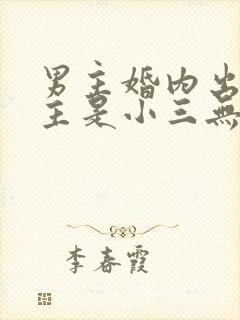 男主婚内出
主是小三無
李春霞